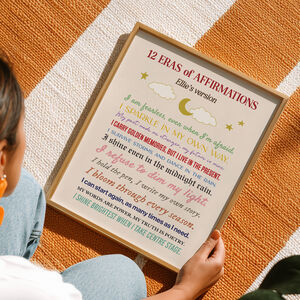 12 ERAS of AFFIRMATIONS
Ellie's version
I am fearless, even when I'm afraid.
I SPARKLE IN MY OWN WAY.
My past made me stronger, my future is mine.
I CARRY GOLDEN MEMORIES, BUT I LIVE IN THE PRESENT.
I SURVIVE STORMS AND DANCE IN THE RAIN.
I shine even in the midnight rain.
I refuse to dim my light.
I hold the pen, I write my own story.
I bloom through every season.
I can start again, as many times as I need.
MY WORDS ARE POWER, MY TRUTH IS POETRY.
I SHINE BRIGHTEST WHEN I TAKE CENTRE STAGE.